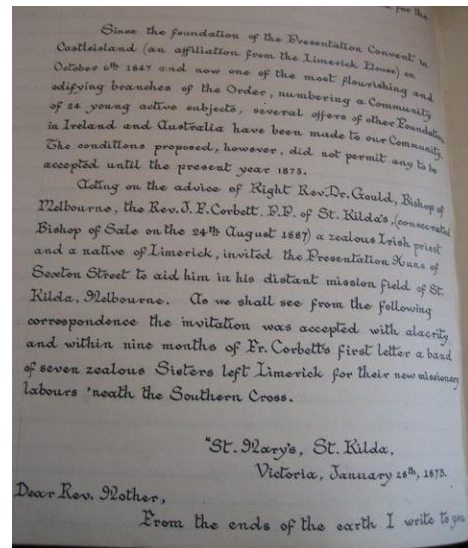 for the
Since the foundation of the Presentation Convent in
Castleisland (an affiliation from the Limerick House) on
October 6th 1847 and now one of the most flourishing and
edifying branches of the Order, numbering a Community
of 24 young active subjects, several offers of other Foundations
in Ireland and Australia have been made to our Community.
The conditions proposed, however, did not permit any to be
accepted until the present year 1873.
Acting on the advice of Right Rev. Dr. Gould, Bishop of
Melbourne, the Rev. J. F. Corbett. P.P. of St. Kilda's, (consecrated
Bishop of Sale on the 24th August 1887) a zealous Irish priest
and a native of Limerick, invited the Presentation Nuns of
Sexton Street to aid him in his distant mission field of St.
Kilda, Melbourne. As we shall see from the following
correspondence the invitation was accepted with alacrity
and within nine months of Fr. Corbett's first letter a band
of seven zealous Sisters left Limerick for their new missionary
labours 'neath the Southern Cross.
"St. Mary's, St. Kilda,
Victoria, January 28th, 1873.
Dear Rev. Mother,
From the ends of the earth I write to you